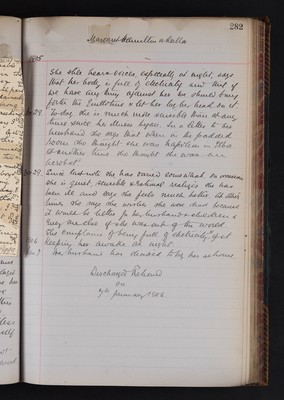 282
Margaret Hamilton or Kalla
1905
She still hears voices, especially at night, says
that her body is full of electricity and that if
we have any thing against her we should bring
forth the Guillotine & let her lay her head on it.
Nov 29. Today she is much more sensible than at any
time since her illness began. In a letter to her
husband she says that when in the padded
room she thought she was Napoleon in Elba
& another time she thought she was an
acrobat.
Dec 29. Since last note she has varied somewhat. On occasions
she is quiet, sensible & rational, realizes she has
been ill and says she feels much better. At other
times she says she wishes she was dead because
it would be better for her husband & children &
they are if she was out of the world.
She complains of being full of electricity yet
1906 keeping her awake at night.
Jan 9 Her husband has desired to by her release.
Discharged Relieved
on
9th January 1906.